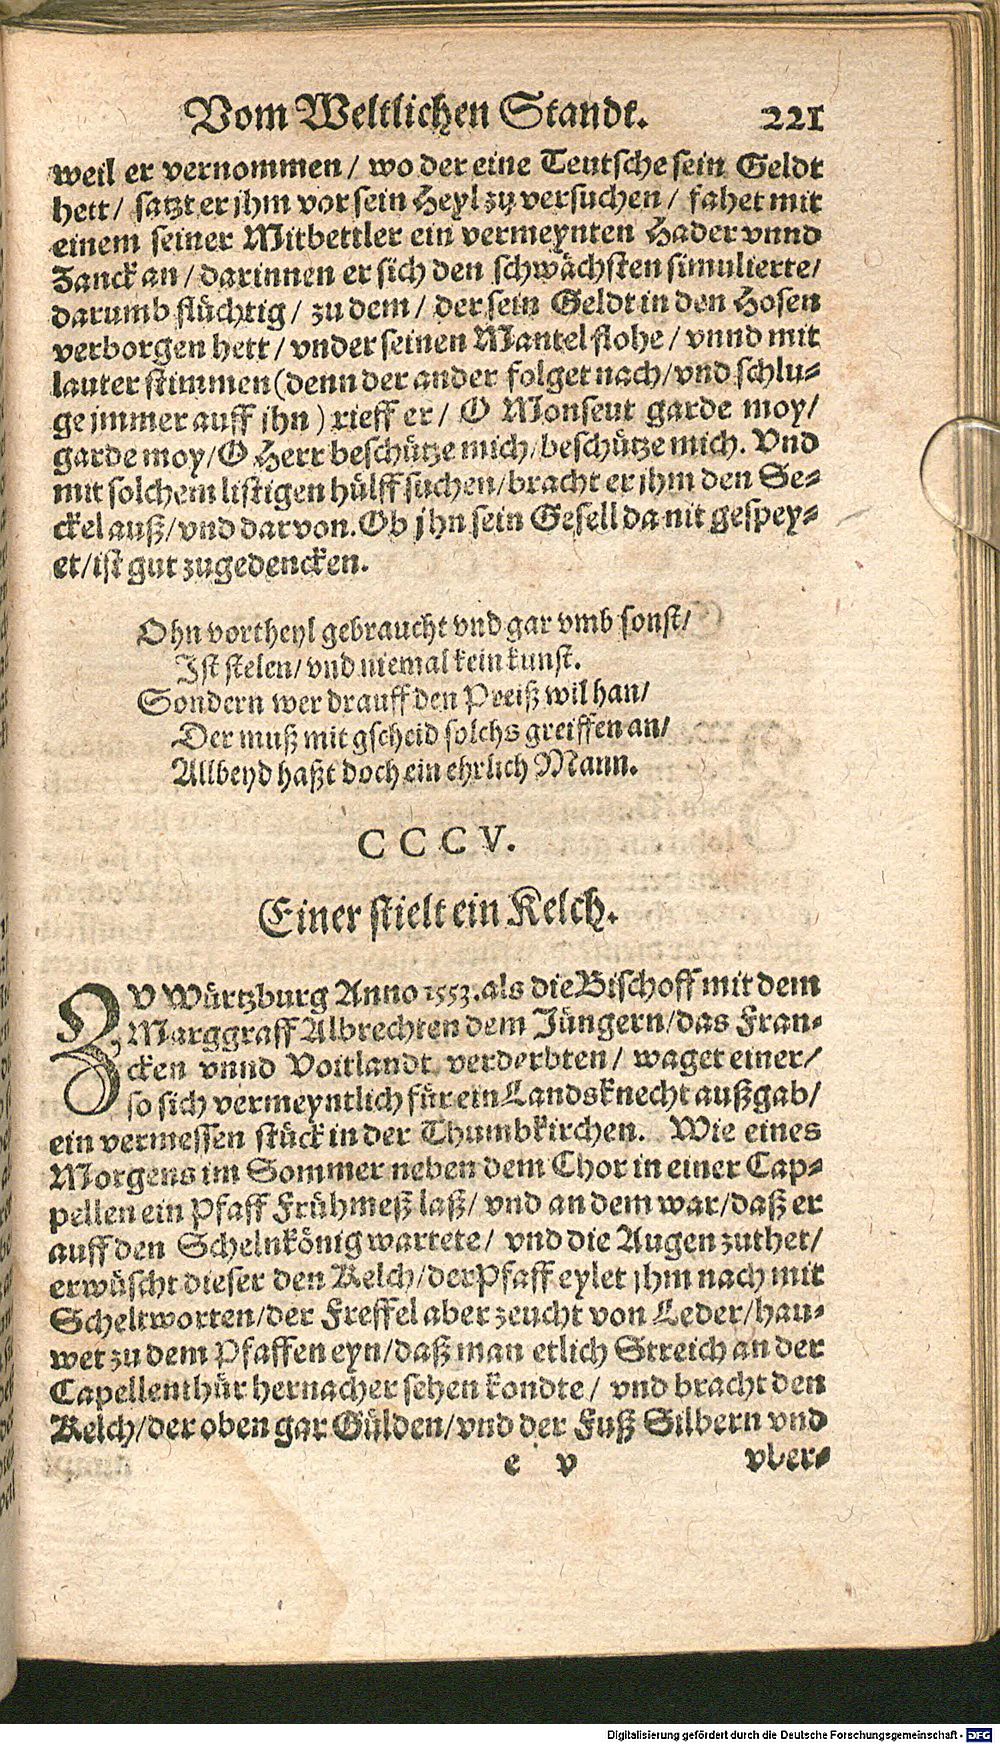 Vom Weltlichen Standt. 221
weil er vernommen / wo der eine Teutsche sein Geldt
hett / satzt er jhm vor sein Heyl zu versuchen / fahet mit
einem seiner Mitbettler ein vermeynten Hader vnnd
Zanck an / darinnen er sich den schwächsten simulierte /
darumb flüchtig / zu dem / der sein Geldt in den Hosen
verborgen hett / vnder seinen Mantel flohe / vnnd mit
lauter stimmen (denn der ander folget nach / vnd schlu-
ge jmmer auff jhn) rieff er / O Monseur garde moy /
garde moy / O Herr beschütze mich / beschütze mich. Vnd
mit solchem listigen hülff suchen / bracht er jhm den Se-
ckel auß / vnd darvon. Ob jhn sein Gesell da nit gespey-
et / ist gut zugedencken.
Ohn vortheyl gebraucht vnd gar vmb sonst /
Ist stelen / vnd niemal kein kunst.
Sondern wer drauff den Preiß wil han /
Der muß mit gscheid solchs greiffen an /
Allbeyd haßt doch ein ehrlich Mann.
CCCV.
Einer stielt ein Kelch.
ZV Würtzburg Anno 1553. als die Bischoff mit dem
Marggraff Albrechten dem Jüngern / das Fran-
cken vnnd Voitlandt verderbten / waget einer /
so sich vermeyntlich für ein Landsknecht außgab /
ein vermessen stück in der Thumbkirchen. Wie eines
Morgens im Sommer neben dem Chor in einer Cap-
pellen ein Pfaff Frühmeß laß / vnd an dem war / daß er
auff den Schelnkönig wartete / vnd die Augen zuthet /
erwüscht dieser den Kelch / der Pfaff eylet jhm nach mit
Scheltworten / der Freffel aber zeucht von Leder / hau-
wet zu dem Pfaffen eyn / daß man etlich Streich an der
Capellenthür hernacher sehen kondte / vnd bracht den
Kelch / der oben gar Gülden / vnd der Fuß Silbern vnd
e v vber-
Digitalisierung gefördert durch die Deutsche Forschungsgemeinschaft - DFG